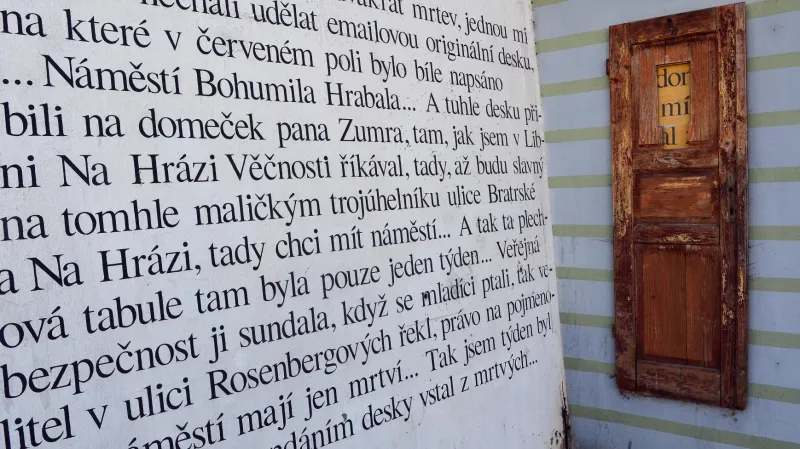 mrtev, jednou mi
nechali udělat emailovou originální desku,
na které v červeném poli bylo bíle napsáno
... Náměstí Bohumila Hrabala... A tuhle desku při-
bili na domeček pana Zumra, tam, jak jsem v Lib-
ni Na Hrázi Věčnosti říkával, tady, až budu slavný
na tomhle maličkým trojúhelníku ulice Bratrské
a Na Hrázi, tady chci mít náměstí... A tak ta plech-
ová tabule tam byla pouze jeden týden... Veřejná
bezpečnost ji sundala, když se mladíci ptali, tak ve-
litel v ulici Rosenbergových řekl, právo na pojmeno-
náměstí mají jen mrtví... Tak jsem týden byl
desky vstal z mrtvých...
dor
mí
al